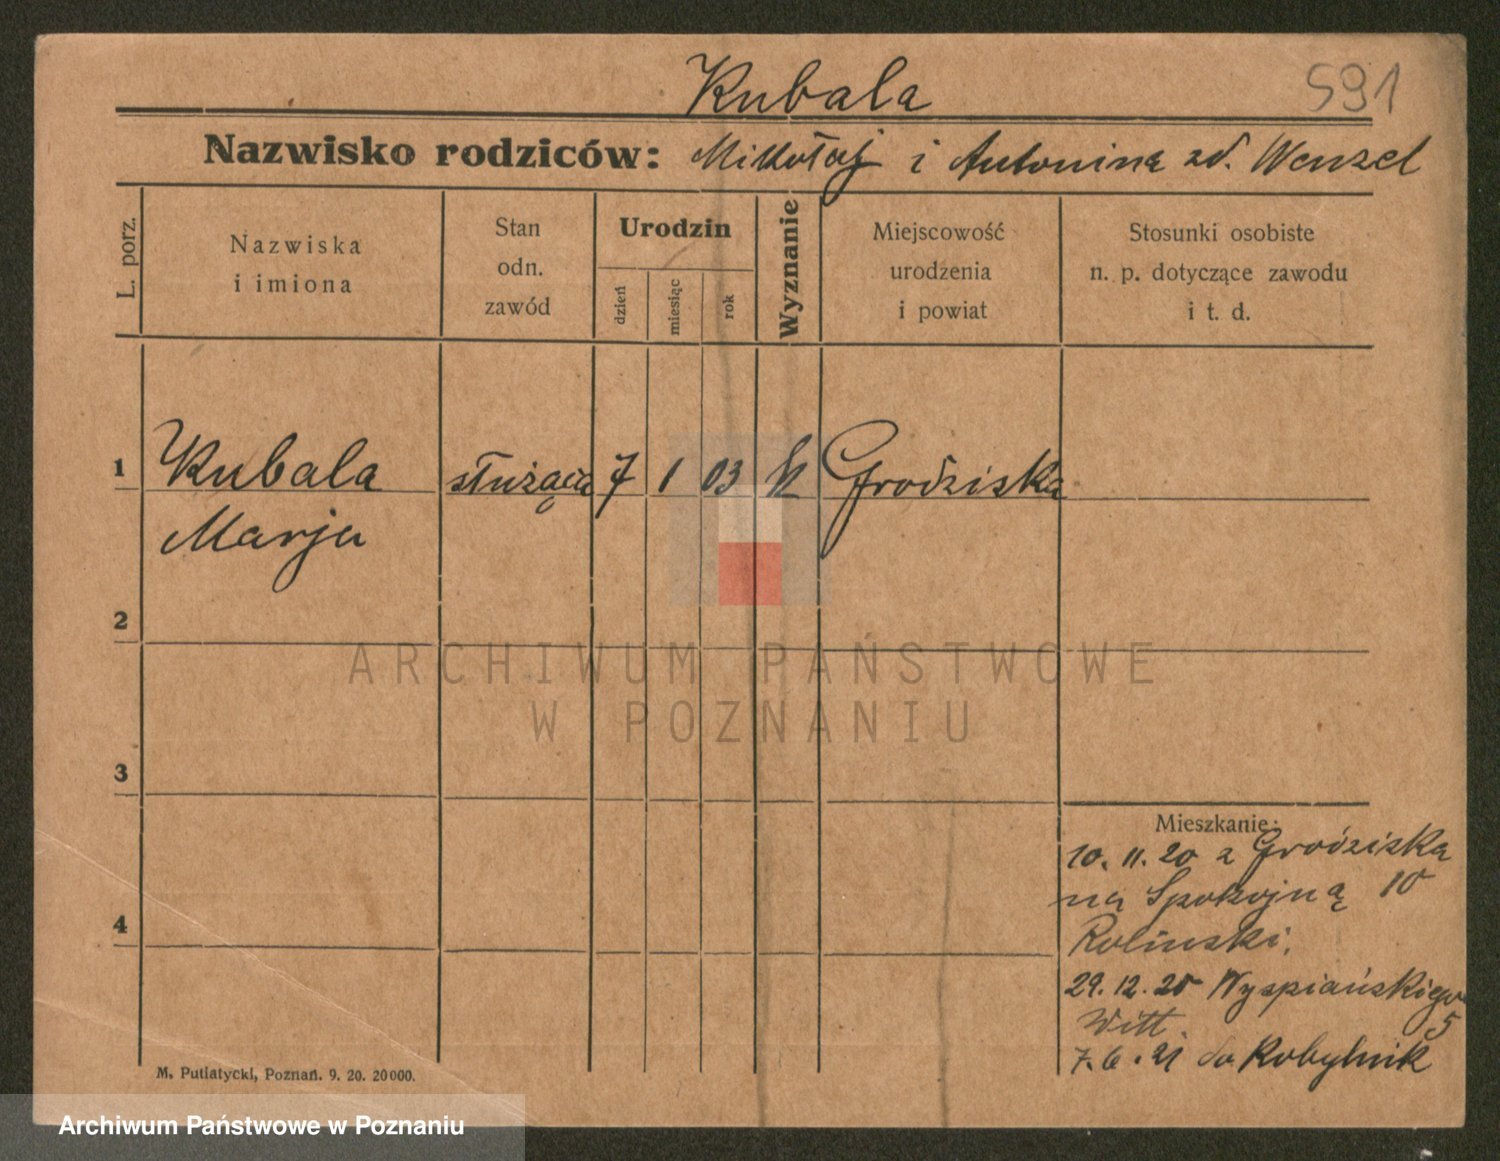 Kubala
591
Nazwisko rodziców: Mikołaj i Antonina zd. Wenzel
L. porz.
Nazwiska
i imiona
Stan
odn.
zawód
Urodzin
dzień
miesiąc
rok
Wyznanie
Miejscowość
urodzenia
i powiat
Stosunki osobiste
n. p. dotyczące zawodu
i t. d.
1 Kubala służąca 7 1 03 k Grodziska
Marja
2
3
4
Mieszkanie:
10. 11. 20 z Grodziska
na Spokojną 10
Rolinski.
29. 12. 20 Wyspiańskiego
5
Witt.
7. 6. 21 do Kobylnik
M. Putiatycki, Poznań. 9. 20. 20000.
ARCHIWUM PAŃSTWOWE
W POZNANIU
Archiwum Państwowe w Poznaniu